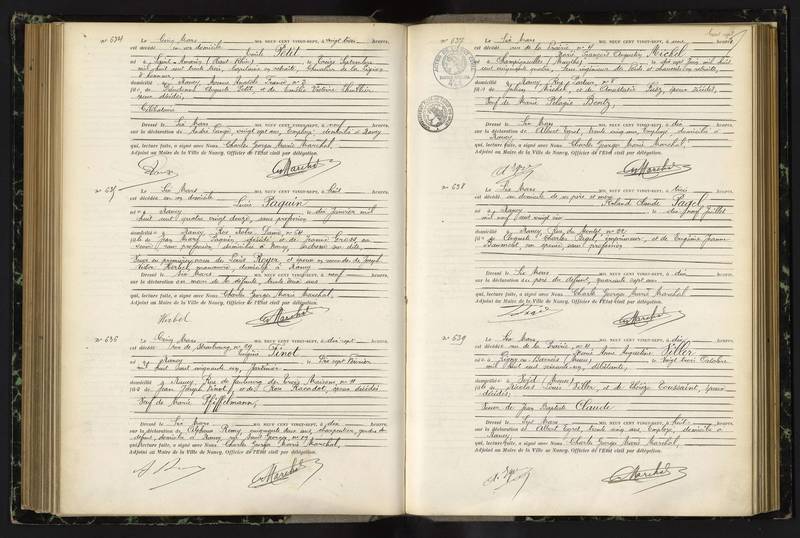 N° 634 Le Cinq Mars MIL NEUF CENT VINGT-SEPT, à vingt trois HEURES,
est décédé en son domicile
Emile Petit
né à Saint-Amarin (Haut Rhin), le treize Septembre
mil huit cent trente trois, Capitaine en retraite, Chevalier de la Légion
d'honneur,
domicilié à Nancy, Avenue Anatole France, n° 3
fils de Dieudonné Auguste Petit, et de Emélie Victoire
époux décédés,
Célibataire
Dressé le Six Mars MIL NEUF CENT VINGT-SEPT, à neuf HEURES,
sur la déclaration de André vingt sept ans, Employé, domicilié à Nancy
qui, lecture faite, a signé avec Nous, Charles Georges Marie Marchal,
Adjoint au Maire de la Ville de Nancy, Officier de l'État civil par délégation.
Marchal
N° 635 Le Six Mars MIL NEUF CENT VINGT-SEPT, à huit HEURES,
est décédée en son domicile
Lucie Paquin
née à Nancy le dix Janvier mil
huit cent quatre vingt douze, sans profession
domiciliée à Nancy, Rue Notre Dame, n° 54
fille de Jean Marie Paquin, décédé et de Jeanne Gross, sa
veuve, sans profession, domiciliée à Nancy,
Veuve en premières noces de Louis Royer et épouse en secondes de Joseph
Victor Herbet, domicilié à Nancy
Dressé le Six Mars MIL NEUF CENT VINGT-SEPT, à neuf HEURES,
sur la déclaration du mari de la défunte, trente ans
qui, lecture faite, a signé avec Nous, Charles Georges Marie Marchal,
Adjoint au Maire de la Ville de Nancy, Officier de l'État civil par délégation.
Herbet Marchal
N° 636 Le Cinq Mars MIL NEUF CENT VINGT-SEPT, à dix sept HEURES,
est décédé Rue de Strasbourg, n° 29
Eugène Pinot
né à Nancy le dix sept Février
mil huit cent cinquante six, Jardinier
domicilié à Nancy, Rue du faubourg des Trois Maisons, n° 11
fils de Jean Joseph Pinot, et de Rose Racadot, époux décédés
Veuf de Marie Pfiffelmann,
Dressé le Six Mars MIL NEUF CENT VINGT-SEPT, à dix HEURES,
sur la déclaration de Alphonse Rémy, cinquante deux ans, charpentier, gendre du
défunt, domicilié à Nancy, rue Saint Georges,
qui, lecture faite, a signé avec Nous, Charles Georges Marie Marchal,
Adjoint au Maire de la Ville de Nancy, Officier de l'État civil par délégation.
Marchal
N° 637 Le Six Mars MIL NEUF CENT VINGT-SEPT, à HEURES,
est décédé rue de la Prairie, n° 11
Marie François Augustin Michel
né à Champigneulles (Meurthe) le dix sept Juin mil huit
cent cinquante quatre, Sous ingénieur des Ponts et chaussées en retraite,
domicilié à Nancy, Rue Pasteur, n° 8
fils de Julien Michel, et de Anastasie époux décédés,
Veuf de Marie Pélagie Bentz,
Dressé le Six Mars MIL NEUF CENT VINGT-SEPT, à dix HEURES,
sur la déclaration de Albert trente cinq ans, Employé, domicilié à
Nancy,
qui, lecture faite, a signé avec Nous, Charles Georges Marie Marchal,
Adjoint au Maire de la Ville de Nancy, Officier de l'État civil par délégation.
Marchal
N° 638 Le Six Mars MIL NEUF CENT VINGT-SEPT, à trois HEURES,
est décédé au domicile de ses père et mère
Roland Claude Pagel
né à Nancy le dix neuf Juillet
mil neuf cent vingt six
domicilié à Nancy, Rue du Montet, n° 22
fils de Auguste Charles Pagel, imprimeur, et de Eugénie Jeanne
son épouse, sans profession
Dressé le Six Mars MIL NEUF CENT VINGT-SEPT, à dix HEURES,
sur la déclaration du père du défunt, quarante sept ans
qui, lecture faite, a signé avec Nous, Charles Georges Marie Marchal,
Adjoint au Maire de la Ville de Nancy, Officier de l'État civil par délégation.
Marchal
N° 639 Le Six Mars MIL NEUF CENT VINGT-SEPT, à dix HEURES,
est décédée rue de la Prairie, n° 11
Marie Anne Augustine Siller
née à (Meuse) le vingt trois Octobre
mil huit cent soixante six, débitante,
domiciliée à (Meuse)
fille de Nicolas Louis Siller, et de Elvize Toussaint, époux
décédés,
Veuve de Jean Baptiste Claude
Dressé le Sept Mars MIL NEUF CENT VINGT-SEPT, à huit HEURES,
sur la déclaration de Albert trente cinq ans, Employé, domicilié à
Nancy,
qui, lecture faite, a signé avec Nous, Charles Georges Marie Marchal,
Adjoint au Maire de la Ville de Nancy, Officier de l'État civil par délégation.
Marchal